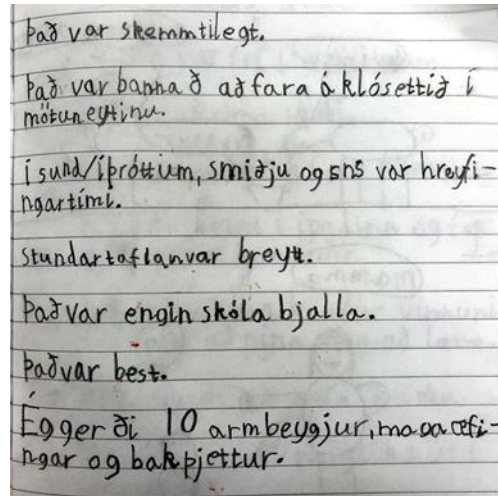 Það var skemmtilegt.
Það var bannað að fara á klósettið í
mötuneytinu.
í sund/íþróttum, smiðju og sns var hreyfi-
ngartími.
stundartaflanvar breytt.
Það var engin skóla bjalla.
Það var best.
Ég gerði 10 armbeygjur, magaæfi-
ngar og bakpjettur.